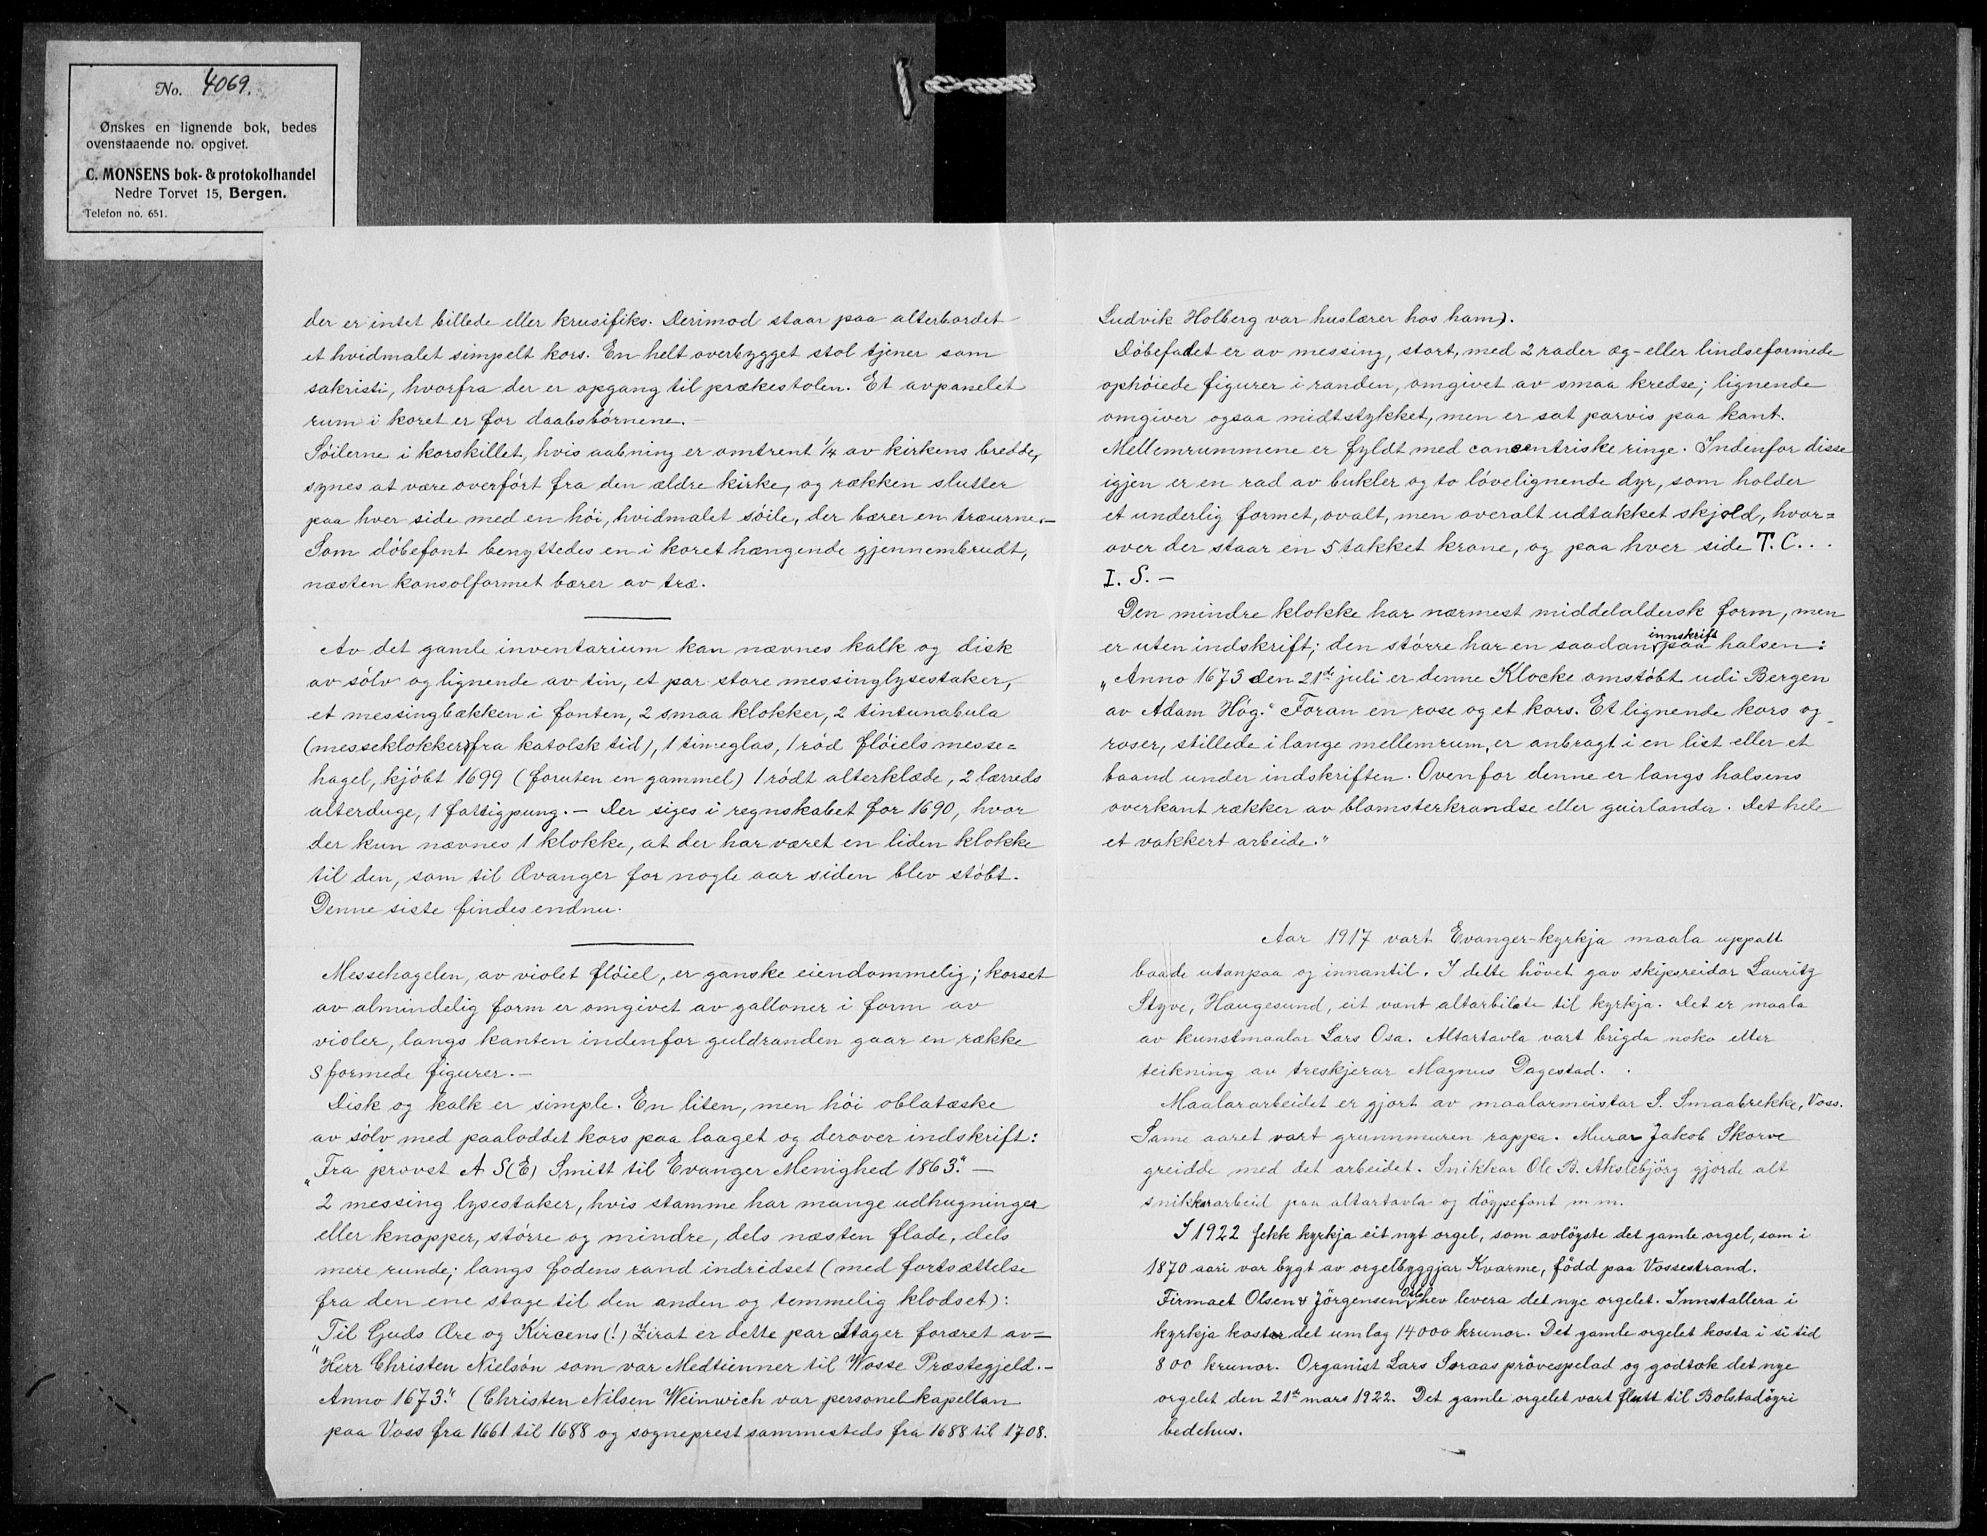 No. 4069.
Ønskes en lignende bok, bedes
ovenstaaende no. opgivet.
C. MONSENS bok- & protokolhandel
Nedre Torvet 15, Bergen.
Telefon no. 651.
der er intet billede eller krusifiks. Derimod staar paa alterbordet
et hvidmalet simpelt kors. En helt overbygget stol tjener som
sakristi, hvorfra der er opgang til prækestolen. Et avpanelet
rum i koret er for daabsbörnene.
Söilerne i korskillet, hvis aabning er omtrent 1/4 av kirkens bredde,
synes at være overfört fra den ældre kirke, og rækken slutter
paa hver side med en höi, hvidmalet söile, der bærer en træurne.—
Som döbefont benyttedes en i koret hængende gjennembrudt,
næsten konsolformet bærer av træ.
Av det gamle inventarium kan nævnes kalk og disk
av sölv og lignende av tin, et par store messinglysestaker,
et messingbækken i fonten, 2 smaa klokker, 2 tintunabula
(messeklokker fra katolsk tid), 1 timeglas, 1 röd flöiels messe=
hagel, kjöbt 1699 (foruten en gammel) 1 rödt alterklæde, 2 lærreds
alterduge, 1 fattigpung.— Der siges i regnskabet for 1690, hvor
der kun nævnes 1 klokke, at der har været en liden klokke
til den, som til Ævanger for nogle aar siden blev stöbt.
Denne siste findes endnu.
Messehagelen, av violet flöiel, er ganske eiendommelig; korset
av almindelig form er omgivet av galloner i form av
violer, langs kanten indenfor guldranden gaar en række
s formede figurer.—
Disk og kalk er simple. En liten, men höi oblatæske
av sölv med paaloddet kors paa laaget og derover indskrift:
"Fra provst A S(E) Smitt til Evanger Menighed 1863".—
2 messing lysestaker, hvis stamme har mange udhugninger
eller knopper, större og mindre, dels næsten flade, dels
mere runde; langs fodens rand indridset (med fortsættelse
fra den ene stage til den anden og temmelig klodset):
"Til Guds Ære og Kircens (!) Zirat er dette par Stager foræret av=
Herr Christen Nielsön som var Medtienner til Wosse Præstegjeld.—
Anno 1673". (Christen Nilsen Weinwich var personel kapellan
paa Voss fra 1661 til 1688 og sogneprest sammesteds fra 1688 til 1708.
Ludvik Holberg var huslærer hos ham).
Döbefadet er av messing, stort, med 2 rader æg- eller lindseformede
ophöiede figurer i randen, omgivet av smaa kredse; lignende
omgiver ogsaa midtstykket, men er sat parvis paa kant.
Mellemrummene er fyldt med concentriske ringe. Indenfor disse
igjen er en rad av bukler og to lövelignende dyr, som holder
et underlig formet, ovalt, men overalt udtakket skjold, hvor=
over der staar en 5 takket krone, og paa hver side T. C...
I. S. —
Den mindre klokke har nærmest middelaldersk form, men
er uten indskrift; den större har en saadan innskrift paa halsen:
"Anno 1673 den 21de juli er denne Klocke omstöbt udi Bergen
av Adam Hög." Foran en rose og et kors. Et lignende kors og
roser, stillede i lange mellemrum, er anbragt i en list eller et
baand under indskriften. Ovenfor denne er langs halsens
overkant rækker av blomsterkrandse eller guirlander. Det hele
et vakkert arbeide."
Aar 1917 vart Evanger-kyrkja maala uppatt
baade utanpaa og innantil. I dette hövet gav skipsreidar Lauritz
Styve, Haugesund, eit vent altarbilæte til kyrkja. Det er maala
av kunstmaalar Lars Osa. Altartavla vart brigda noko etter
teikning av treskjerar Magnus Dagestad.
Maalararbeidet er gjort av maalarmeistar S. Smaabrekke, Voss.
Same aaret vart grunnmuren rappa. Murar Jakob Skorve
greidde med det arbeidet. Snikkar Ole B. Akslebjörg gjorde alt
snikkararbeid paa altartavla og döypefont m. m.
I 1922 fekk kyrkja eit nyt orgel, som avlöyste det gamle orgel, som i
1870 aari var bygt av orgelbyggjar Kvarme, född paa Vossestrand.
Firmaet Olsen & Jörgensen, Oslo hev levera det nye orgelet. Innstallera i
kyrkja kostar det umlag 14000 krunor. Det gamle orgelet kosta i si tid
800 krunor. Organist Lars Söraas prövespelad og godtok det nye
orgelet den 21de mars 1922. Det gamle orgelet vart flutt til Bolstadöyri
bedehus.